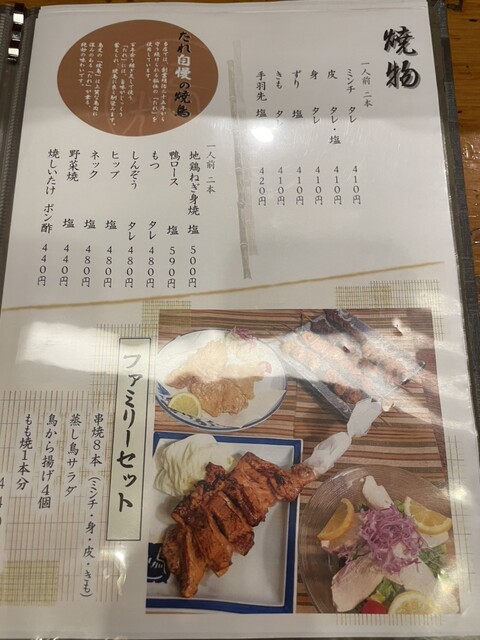 焼物
一人前 二本
ミンチ タレ 410円
皮 タレ・塩 410円
身 タレ 410円
ずり 塩 410円
きも タレ 410円
手羽先 塩 420円
たれ自慢の焼鳥
一人前 二本
地鶏ねぎ身焼 塩 500円
鴨ロース 塩 590円
もつ タレ 480円
しんぞう タレ 480円
ヒップ 塩 480円
ネック 塩 480円
野菜焼 塩 440円
焼しいたけ ポン酢 440円
ファミリーセット
串焼8本(ミンチ・身・皮・きも)
蒸し鳥サラダ
鳥から揚げ4個
もも焼1本分